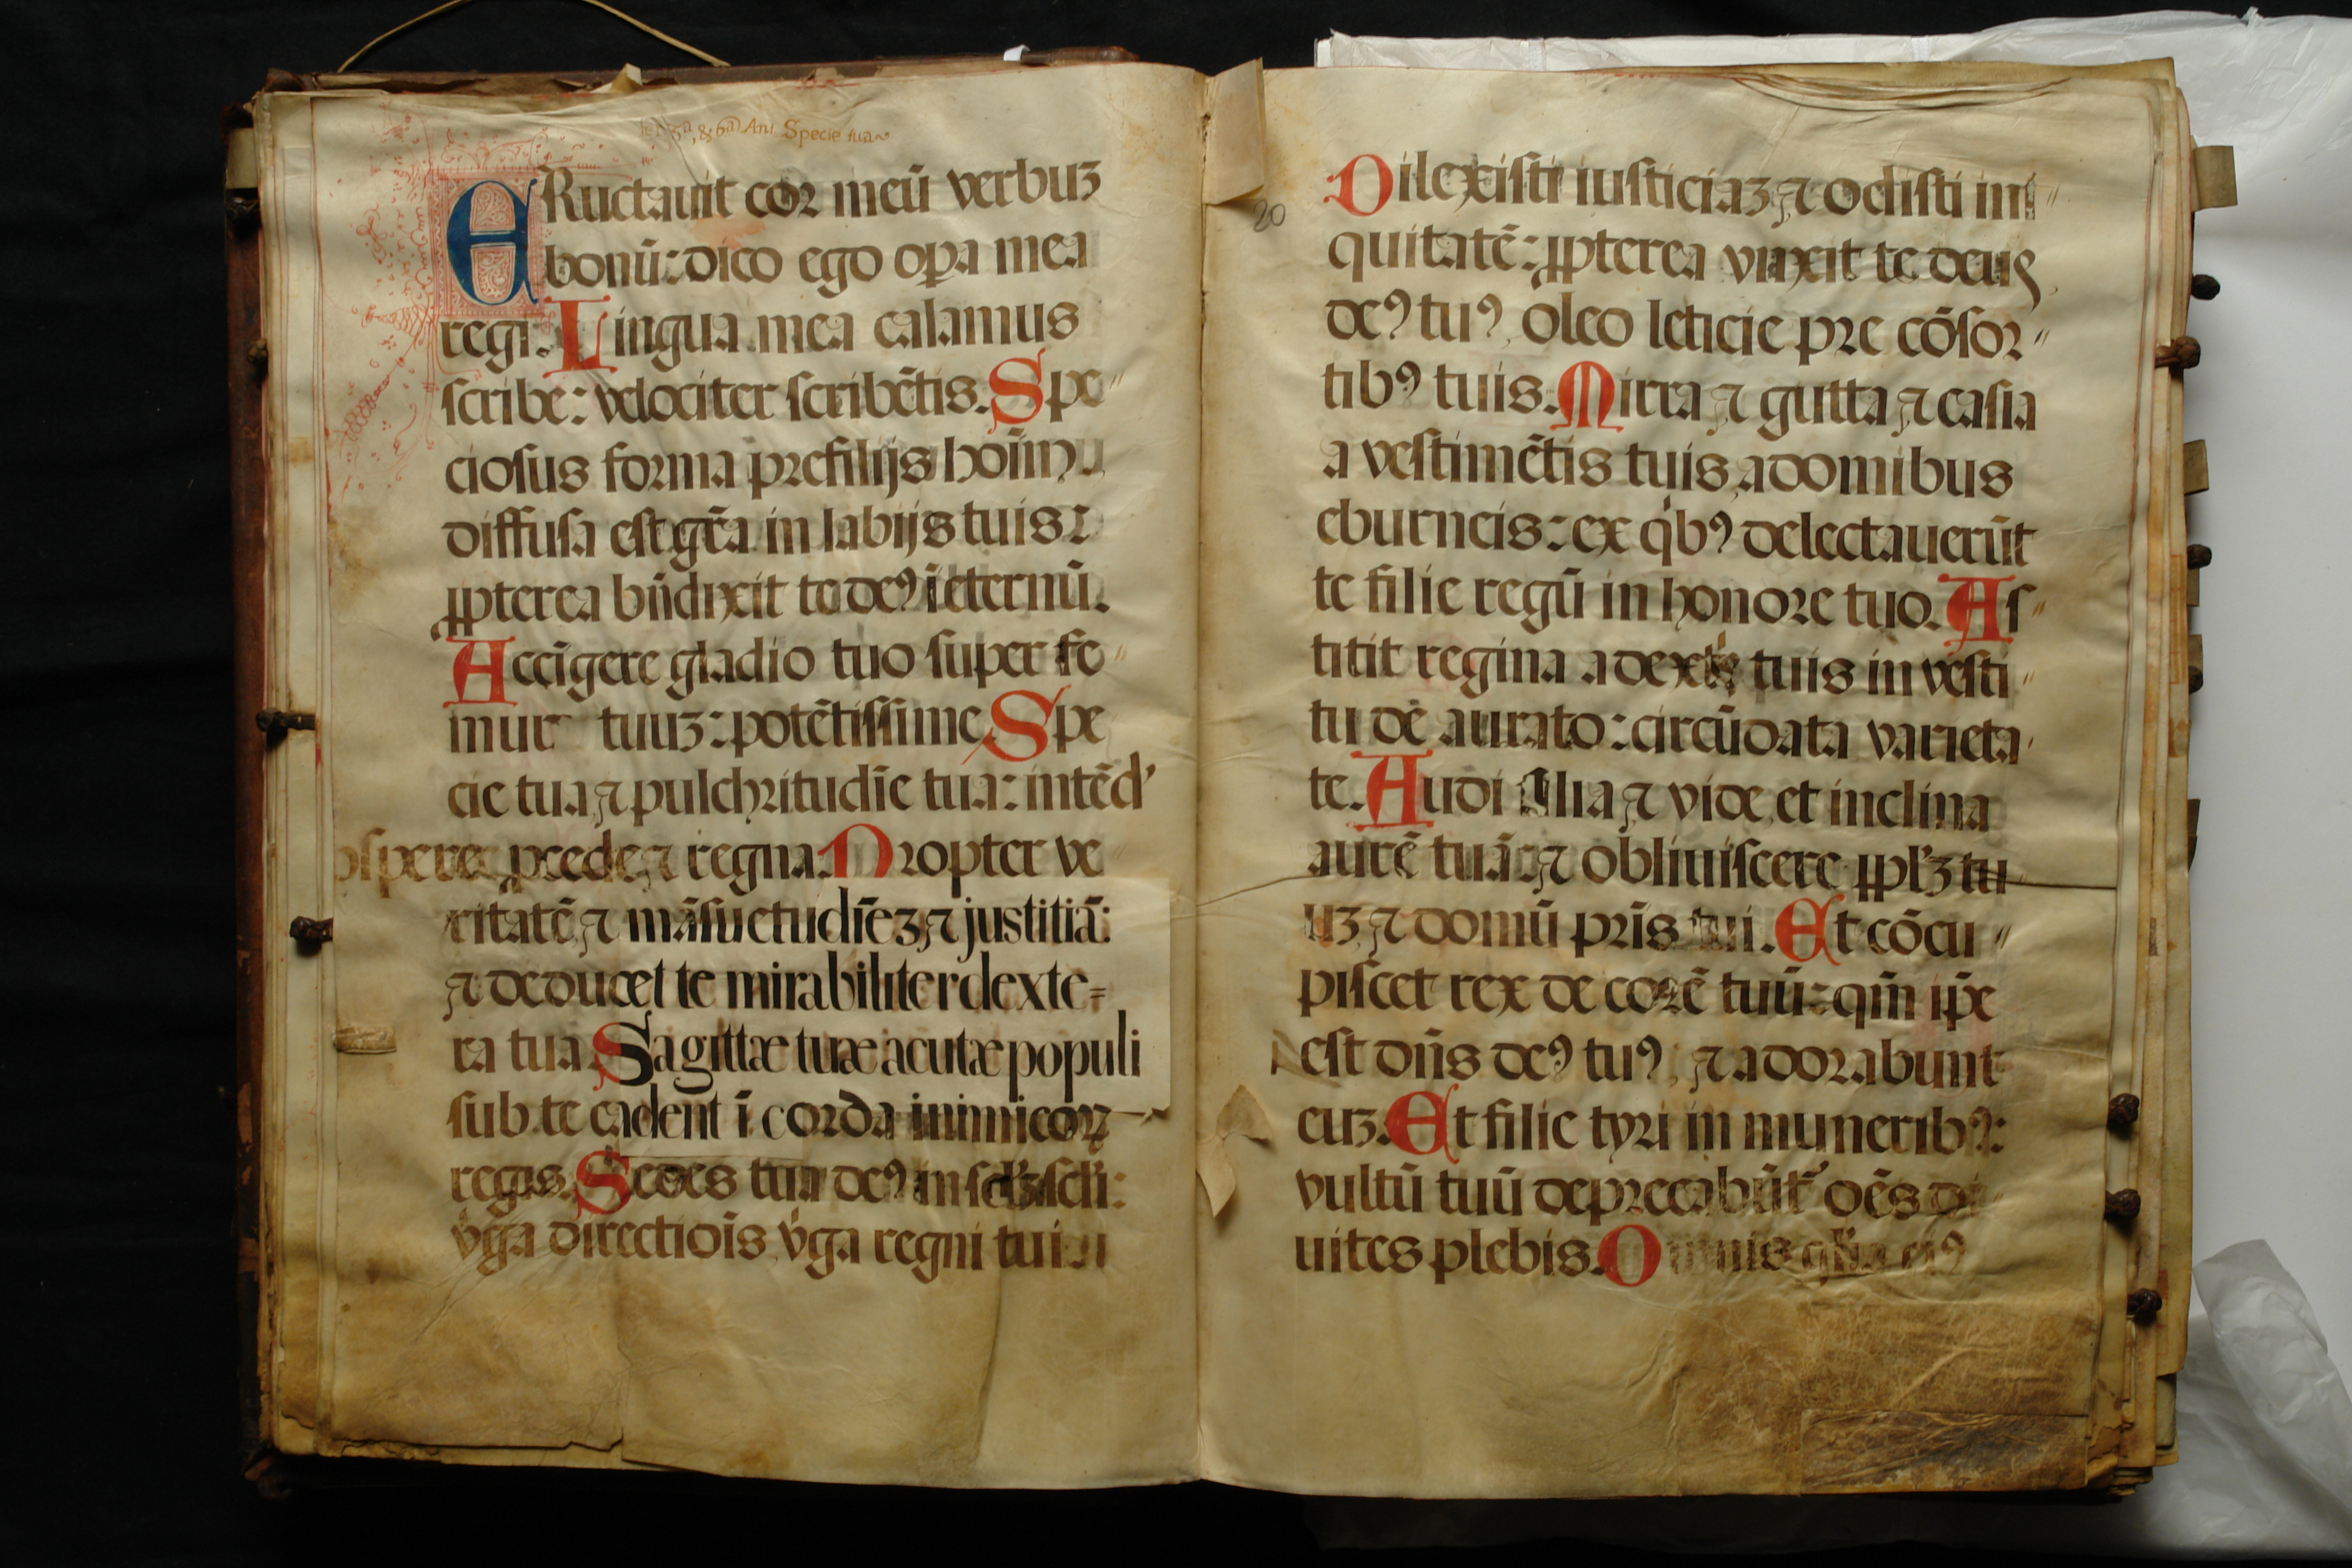 & 6ª Anª Specie tua
ERuctauit cor meū verbuʒ
bonū: dico ego oꝑa mea
regi. Lingua mea calamus
scribe: velociter scribētis. Spe〃
ciosus forma pre filijs hoīnu
diffusa est gr̄a in labijs tuis:
ꝓpterea bn̄dixit te deꝰ ī eternū.
Accīgere gladio tuo super fe〃
mur tuuʒ: potētissime Spe
cie tua ⁊ pulchritudīe tua: intēd'
ospere, ꝓcede ⁊ regna. Propter ve
ritatē ⁊ māsuetudīeʒ ⁊ justitiā:
⁊ deducet te mirabiliter dexte=
ra tua. Sagittæ tuæ acutæ populi
sub te cadent ī corda inimicoꝝ
regis. Sedes tua deꝰ in
v̓ga directiōis v̓ga regni tui
20
Dilexisti iusticiaʒ ⁊ odisti ini〃
quitatē: ꝓpterea vnxit te deus
deꝰ tuꝰ, oleo leticie pre cōsor〃
tibꝰ tuis. Mirra ⁊ gutta ⁊ casia
a vestimētis tuis, a domibus
eburneis: ex qͥbꝰ delectauerūt
te filie regū in honore tuo. As〃
titit regina a dextͥs tuis in vesti〃
tu dē aurato: circūdata varieta
te. Audi filia ⁊ vide, et inclina
aurē tuā: ⁊ obliuiscere ꝓpl̓ʒ tu
uʒ ⁊ domū pr̄is tui. Et cōcu〃
piscet rex de corē tuū: qm̄ ip̄e
est dn̄s deꝰ tuꝰ, ⁊ adorabunt
euʒ. Et filie tyri in muneribꝰ:
vultū tuū deprecabūt̓ oēs di
uites plebis. Omnis gl̓ia eiꝰ